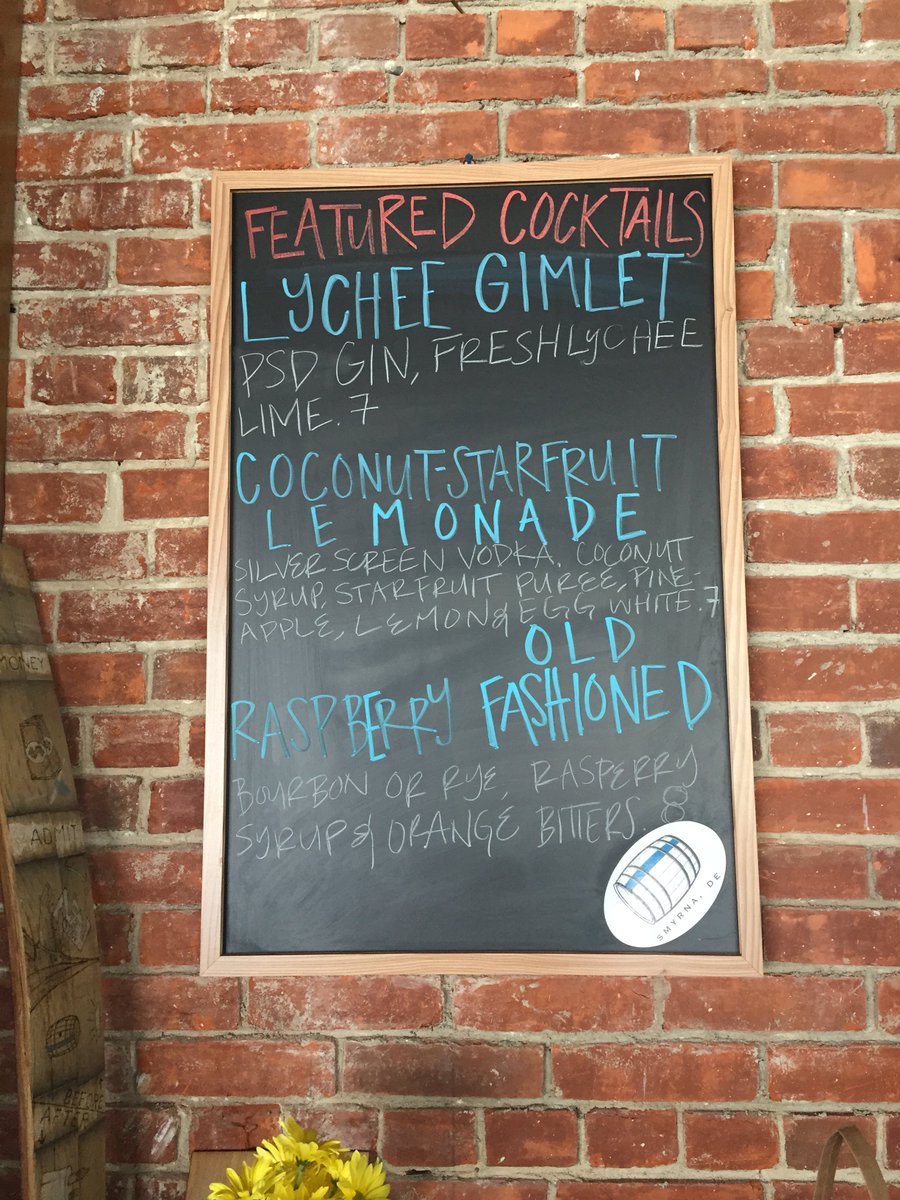 FEATURED COCKTAILS
LYCHEE GIMLET
PSD GIN, FRESH LYCHEE
LIME. 7
COCONUT-STARFRUIT
LEMONADE
SILVER SCREEN VODKA, COCONUT
SYRUP, STARFRUIT PUREE, PINE-
APPLE, LEMON & EGG WHITE. 7
OLD
RASPBERRY FASHIONED
BOURBON OR RYE, RASPERRY
SYRUP & ORANGE BITTERS. 8
SMYRNA, DE
MONEY
ADMIT
BEFORE
AFTER